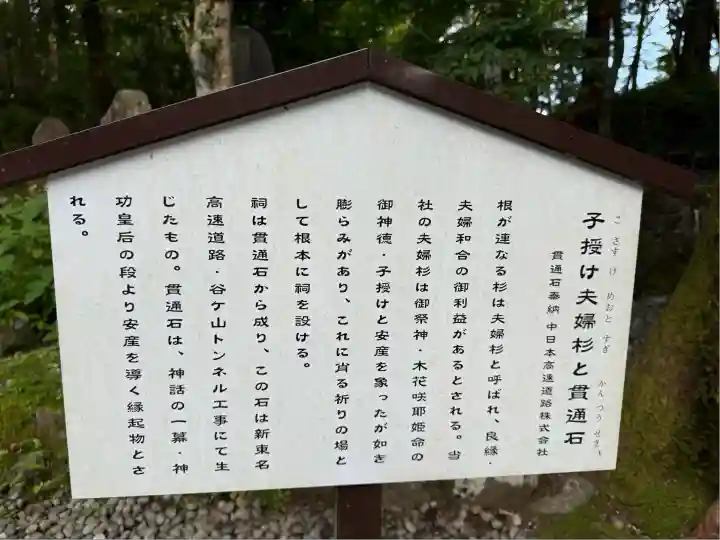 こさずけ めおと すぎ かんつう せき
子授け夫婦杉と貫通石
貫通石奉納 中日本高速道路株式会社
根が連なる杉は夫婦杉と呼ばれ、良縁・
夫婦和合の御利益があるとされる。当
社の夫婦杉は御祭神・木花咲耶姫命の
御神徳・子授けと安産を象ったが如き
膨らみがあり、これに肖る祈りの場と
して根本に祠を設ける。
祠は貫通石から成り、この石は新東名
高速道路・谷ケ山トンネル工事にて生
じたもの。貫通石は、神話の一幕・神
功皇后の段より安産を導く縁起物とさ
れる。